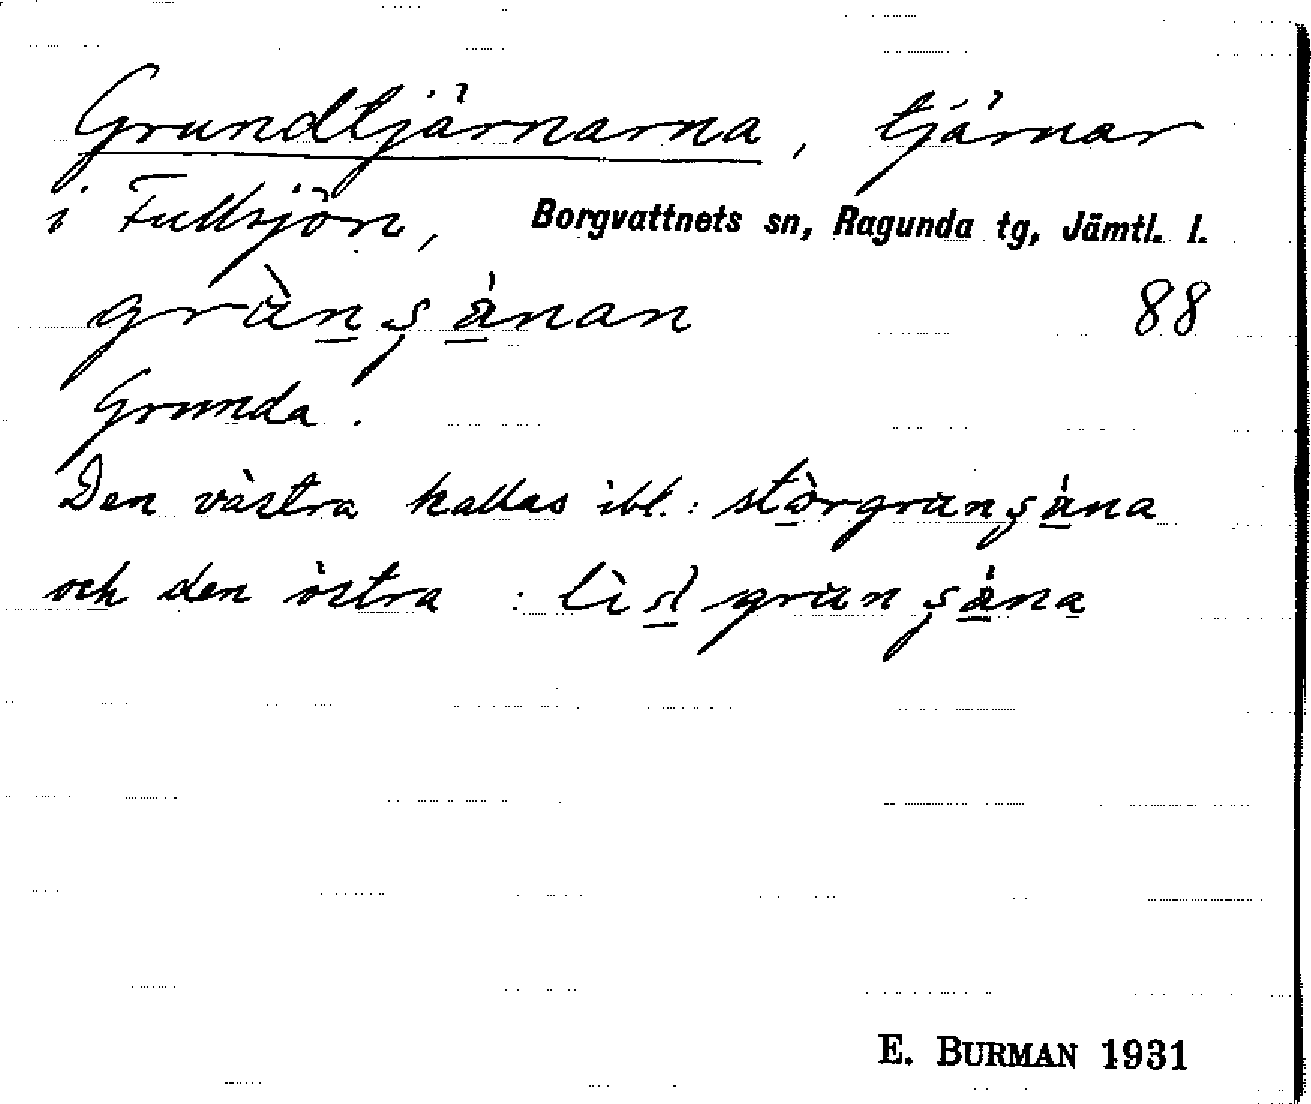 Grundtjärnarna, tjärnar
i Fullsjön, Borgvattnets sn, Ragunda tg, Jämtl. l.
grànşánan 88
Grunda.
Den västra kallas ibl.: stòrgranşána
och den östra : lìslgranşána
E. BURMAN 1931